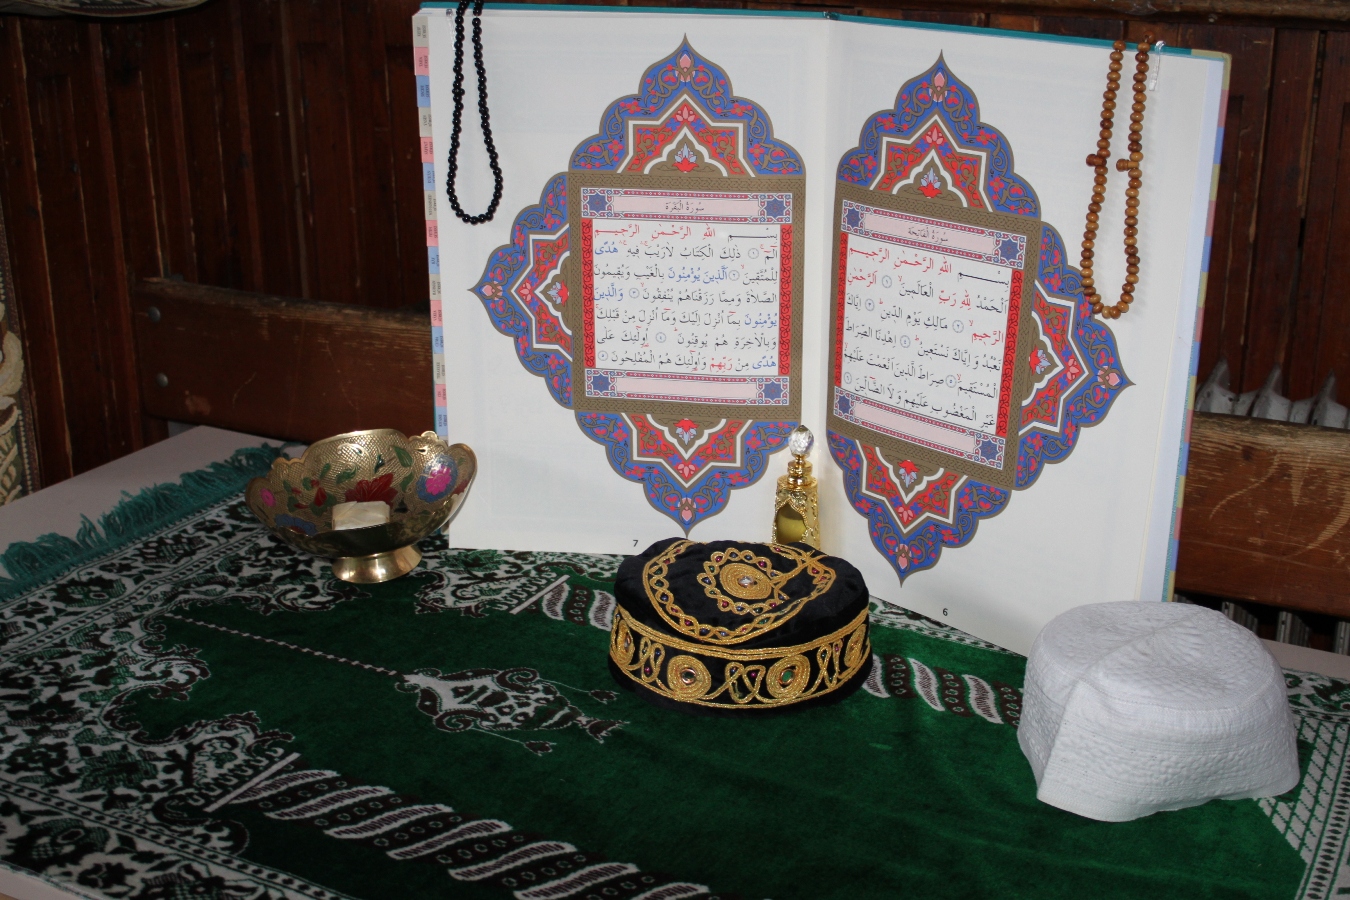 سُورَةُ الْفَاتِحَة
بِسْــــمِ اللهِ الرَّحْمٰنِ الرَّحِيـمِ
اَلْحَمْدُ لِلّٰهِ رَبِّ الْعَالَمِينَ ۙ ﴿١﴾ اَلرَّحْمٰنِ
الرَّحِيمِ ۙ ﴿٢﴾ مَالِكِ يَوْمِ الدّ۪ينِ ۜ ﴿٣﴾ اِيَّاكَ
نَعْبُدُ وَ اِيَّاكَ نَسْتَع۪ينُ ۜ ﴿٤﴾ اِهْدِنَا الصِّرَاطَ
الْمُسْتَق۪يمَ ۙ ﴿٥﴾ صِرَاطَ الَّذ۪ينَ اَنْعَمْتَ عَلَيْهِمْ
غَيْرِ الْمَغْضُوبِ عَلَيْهِمْ وَ لَا الضَّٓالّ۪ينَ ﴿٦﴾
6
سُورَةُ الْبَقَرَة
بِسْــــمِ اللهِ الرَّحْمٰنِ الرَّحِيـمِ
الٓمٓ ۚ ﴿١﴾ ذٰلِكَ الْكِتَابُ لَارَيْبَ ۚ ف۪يهِ ۚ هُدًى
لِلْمُتَّق۪ينَ ۙ ﴿٢﴾ اَلَّذ۪ينَ يُؤْمِنُونَ بِالْغَيْبِ وَيُق۪يمُونَ
الصَّلٰوةَ وَمِمَّا رَزَقْنَاهُمْ يُنْفِقُونَ ۙ ﴿٣﴾ وَالَّذ۪ينَ
يُؤْمِنُونَ بِمَٓا اُنْزِلَ اِلَيْكَ وَمَٓا اُنْزِلَ مِنْ قَبْلِكَ ۚ
وَبِالْاٰخِرَةِ هُمْ يُوقِنُونَ ۜ ﴿٤﴾ اُو۬لٰٓئِكَ عَلٰى
هُدًى مِنْ رَبِّهِمْ وَاُو۬لٰٓئِكَ هُمُ الْمُفْلِحُونَ ﴿٥﴾
7